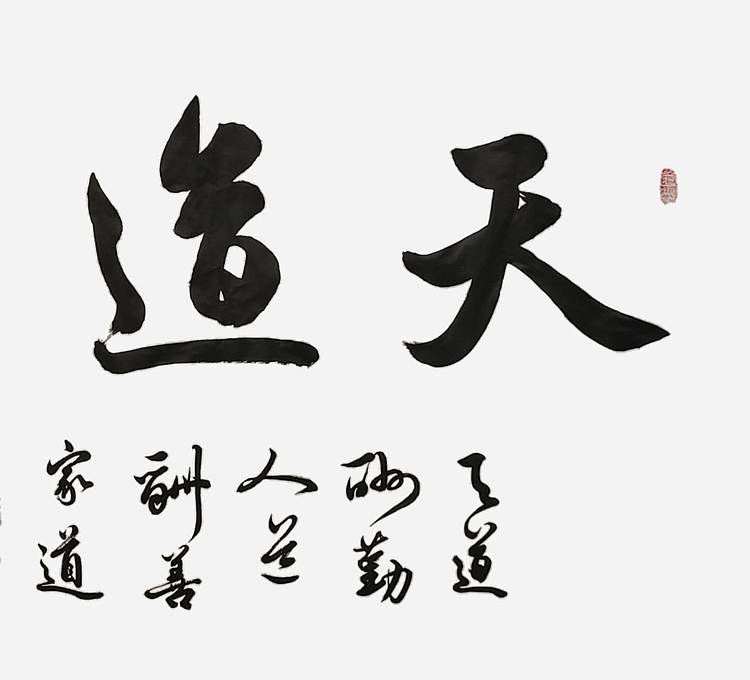 天道
天道
酬勤
人道
酬善
家道